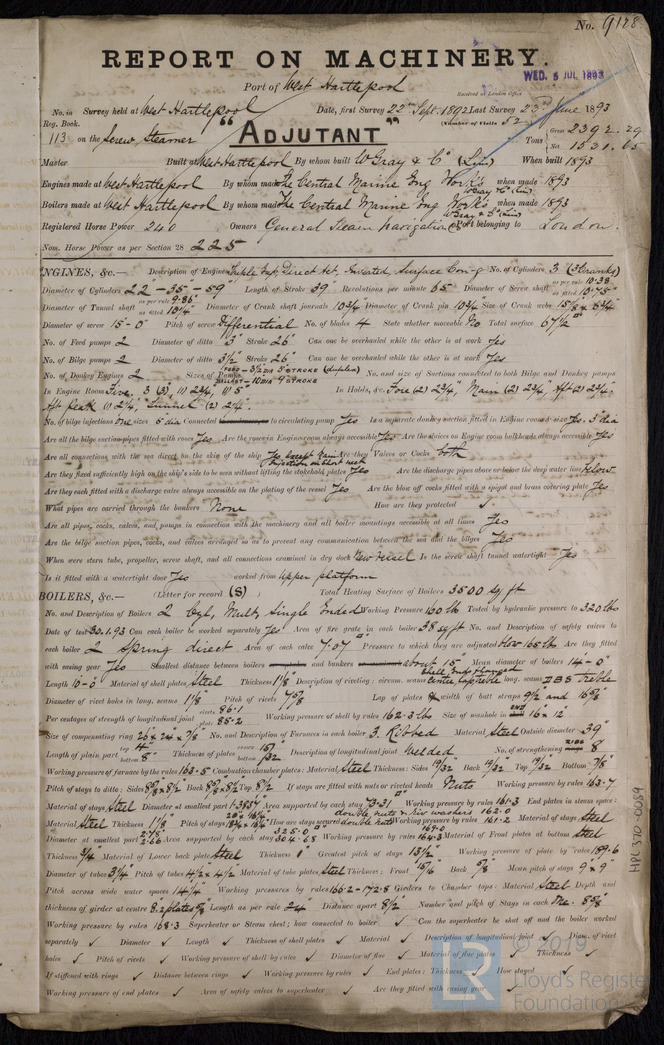 No. 9128
REPORT ON MACHINERY.
Port of West Hartlepool
Received at London Office WED. 5 JUL 1893
No. in Survey held at West Hartlepool Date, first Survey 22nd Sept. 1892 Last Survey 23rd June 1893
Reg. Book. (Number of Visits 52)
113 on the Screw Steamer "ADJUTANT" Tons Gross 2392.29
Net 1531.65
Master Built at West Hartlepool By whom built W Gray & Co (Lim) When built 1893
Engines made at West Hartlepool By whom made The Central Marine Eng Works when made 1893
W Gray & Co (Lim)
Boilers made at West Hartlepool By whom made The Central Marine Eng Works when made 1893
W Gray & Co (Lim)
Registered Horse Power 240 Owners General Steam Navigation Co Port belonging to London.
Nom. Horse Power as per Section 28 225
ENGINES, &c.— Description of Engines Triple Exp, Direct Act, Inverted, Surface Con-g No. of Cylinders 3 (3 Cranks)
Diameter of Cylinders 22 - 35 - 59" Length of Stroke 39" Revolutions per minute 65 Diameter of Screw shaft as per rule 10.38 as fitted 10.75"
Diameter of Tunnel shaft as per rule 9.86" as fitted 10 1/4" Diameter of Crank shaft journals 10 3/4" Diameter of Crank pin 10 3/4" Size of Crank webs
Diameter of screw 15-0" Pitch of screw Differential No. of blades 4 State whether moveable No Total surface 67 1/2 □"
No. of Feed pumps 2 Diameter of ditto 3" Stroke 26" Can one be overhauled while the other is at work Yes
No. of Bilge pumps 2 Diameter of ditto 3 1/2 Stroke 26" Can one be overhauled while the other is at work Yes
No. of Donkey Engines 2 Sizes of Pumps FEED - 3 1/2 DIA 5" STROKE (duplex) BALLAST - 10 DIA 9" STROKE No. and size of Suctions connected to both Bilge and Donkey pumps
In Engine Room Five, 3 (3"), (1) 2 3/4, (1) 5" In Holds, &c. Fore (2) 2 3/4", Main (2) 2 3/4, Aft (2) 2 3/4"
Aft peak (1) 2 1/4", Tunnel (2) 2 1/4".
No. of bilge injections one sizes 5 dia Connected to circulating pump Yes Is a separate donkey suction fitted in Engine room & size Yes. 5 dia
Are all the bilge suction pipes fitted with roses Yes Are the roses in Engine room always accessible Yes Are the sluices on Engine room bulkheads always accessible Yes
Are all connections with the sea direct on the skin of the ship Yes except main injection on blast tank Are they Valves or Cocks both
Are they fixed sufficiently high on the ship's side to be seen without lifting the stokehold plates Yes Are the discharge pipes above or below the deep water line below
Are they each fitted with a discharge valve always accessible on the plating of the vessel Yes Are the blow off cocks fitted with a spigot and brass covering plate Yes
What pipes are carried through the bunkers None How are they protected ✓
Are all pipes, cocks, valves, and pumps in connection with the machinery and all boiler mountings accessible at all times Yes
Are the bilge suction pipes, cocks, and valves arranged so as to prevent any communication between the sea and the bilges Yes
When were stern tube, propeller, screw shaft, and all connections examined in dry dock New Vessel Is the screw shaft tunnel watertight Yes
Is it fitted with a watertight door Yes worked from Upper platform
BOILERS, &c.— (Letter for record (S)) Total Heating Surface of Boilers 3500 sq ft
No. and Description of Boilers 2 Cyl, Mult, Single Ended Working Pressure 160 lb Tested by hydraulic pressure to 320 lbs
Date of test 30.1.93 Can each boiler be worked separately Yes Area of fire grate in each boiler 38 sq ft No. and Description of safety valves to
each boiler 2 Spring direct Area of each valve 7.07 □" Pressure to which they are adjusted blow 165 lb Are they fitted
with easing gear Yes Smallest distance between boilers and bunkers about 15" Mean diameter of boilers 14-0"
Length 10-0" Material of shell plates Steel Thickness 1 1/8" Description of riveting: circum. seams long. seams DBS Treble
Diameter of rivet holes in long. seams 1 1/8 Pitch of rivets 7 5/8 Lap of plates or width of butt straps 9 1/2 and 16 5/8"
Per centages of strength of longitudinal joint rivets 86.1 plate 85.2 Working pressure of shell by rules 162.3 lb Size of manhole in END 16" x 12"
Size of compensating ring 26 x 24 x 7/8" No. and Description of Furnaces in each boiler 3. Ribbed Material Steel Outside diameter 39"
Length of plain part top 4" bottom 8" Thickness of plates Description of longitudinal joint Welded No. of strengthening RIBS 8
Working pressure of furnace by the rules 163.5 Combustion chamber plates: Material Steel Thickness: Sides 19/32 Back 19/32 Top 19/32 Bottom 7/8
Pitch of stays to ditto: Sides 8 5/8 x 8 1/2 Back 8 5/8 x 8 1/2 Top 8 1/2 If stays are fitted with nuts or riveted heads Nuts Working pressure by rules 163.7
Material of stays Steel Diameter at smallest part 1.3957 Area supported by each stay 73.31 □" Working pressure by rules 161.3 End plates in steam space:
Material Steel Thickness 1 1/8 Pitch of stays How are stays secured double nuts & riv washers double nuts Working pressure by rules 162.0 161.2 Material of stays Steel
Diameter at smallest part 2 7/8" 2.66 Area supported by each stay 325.0 304.68 □" Working pressure by rules 167.0 164.3 Material of Front plates at bottom Steel
Thickness 3/4" Material of Lower back plate Steel Thickness 1" Greatest pitch of stays 13 1/2" Working pressure of plate by rules 189.6
Diameter of tubes 3 1/4" Pitch of tubes 4 1/2 x 4 1/2 Material of tube plates Steel Thickness: Front 15/16 Back 5/8 Mean pitch of stays 9" x 9"
Pitch across wide water spaces 14 1/4" Working pressures by rules 166.2 - 172.8 Girders to Chamber tops: Material Steel Depth and
thickness of girder at centre 8. 2 plates 5/8 Length as per rule 24" Distance apart 8 1/2 Number and pitch of Stays in each
Working pressure by rules 168.3 Superheater or Steam chest; how connected to boiler ✓ Can the superheater be shut off and the boiler worked
separately ✓ Diameter ✓ Length ✓ Thickness of shell plates ✓ Material ✓ Description of longitudinal joint ✓ Diam. of rivet
holes ✓ Pitch of rivets ✓ Working pressure of shell by rules ✓ Diameter of flue ✓ Material of flue plates ✓ Thickness ✓
If stiffened with rings ✓ Distance between rings ✓ Working pressure by rules ✓ End plates: Thickness ✓ How stayed
Working pressure of end plates ✓ Area of safety valves to superheater ✓ Are they fitted with easing gear ✓
HPL 370-0059
LR
© 2019
Lloyd's Register
Foundation